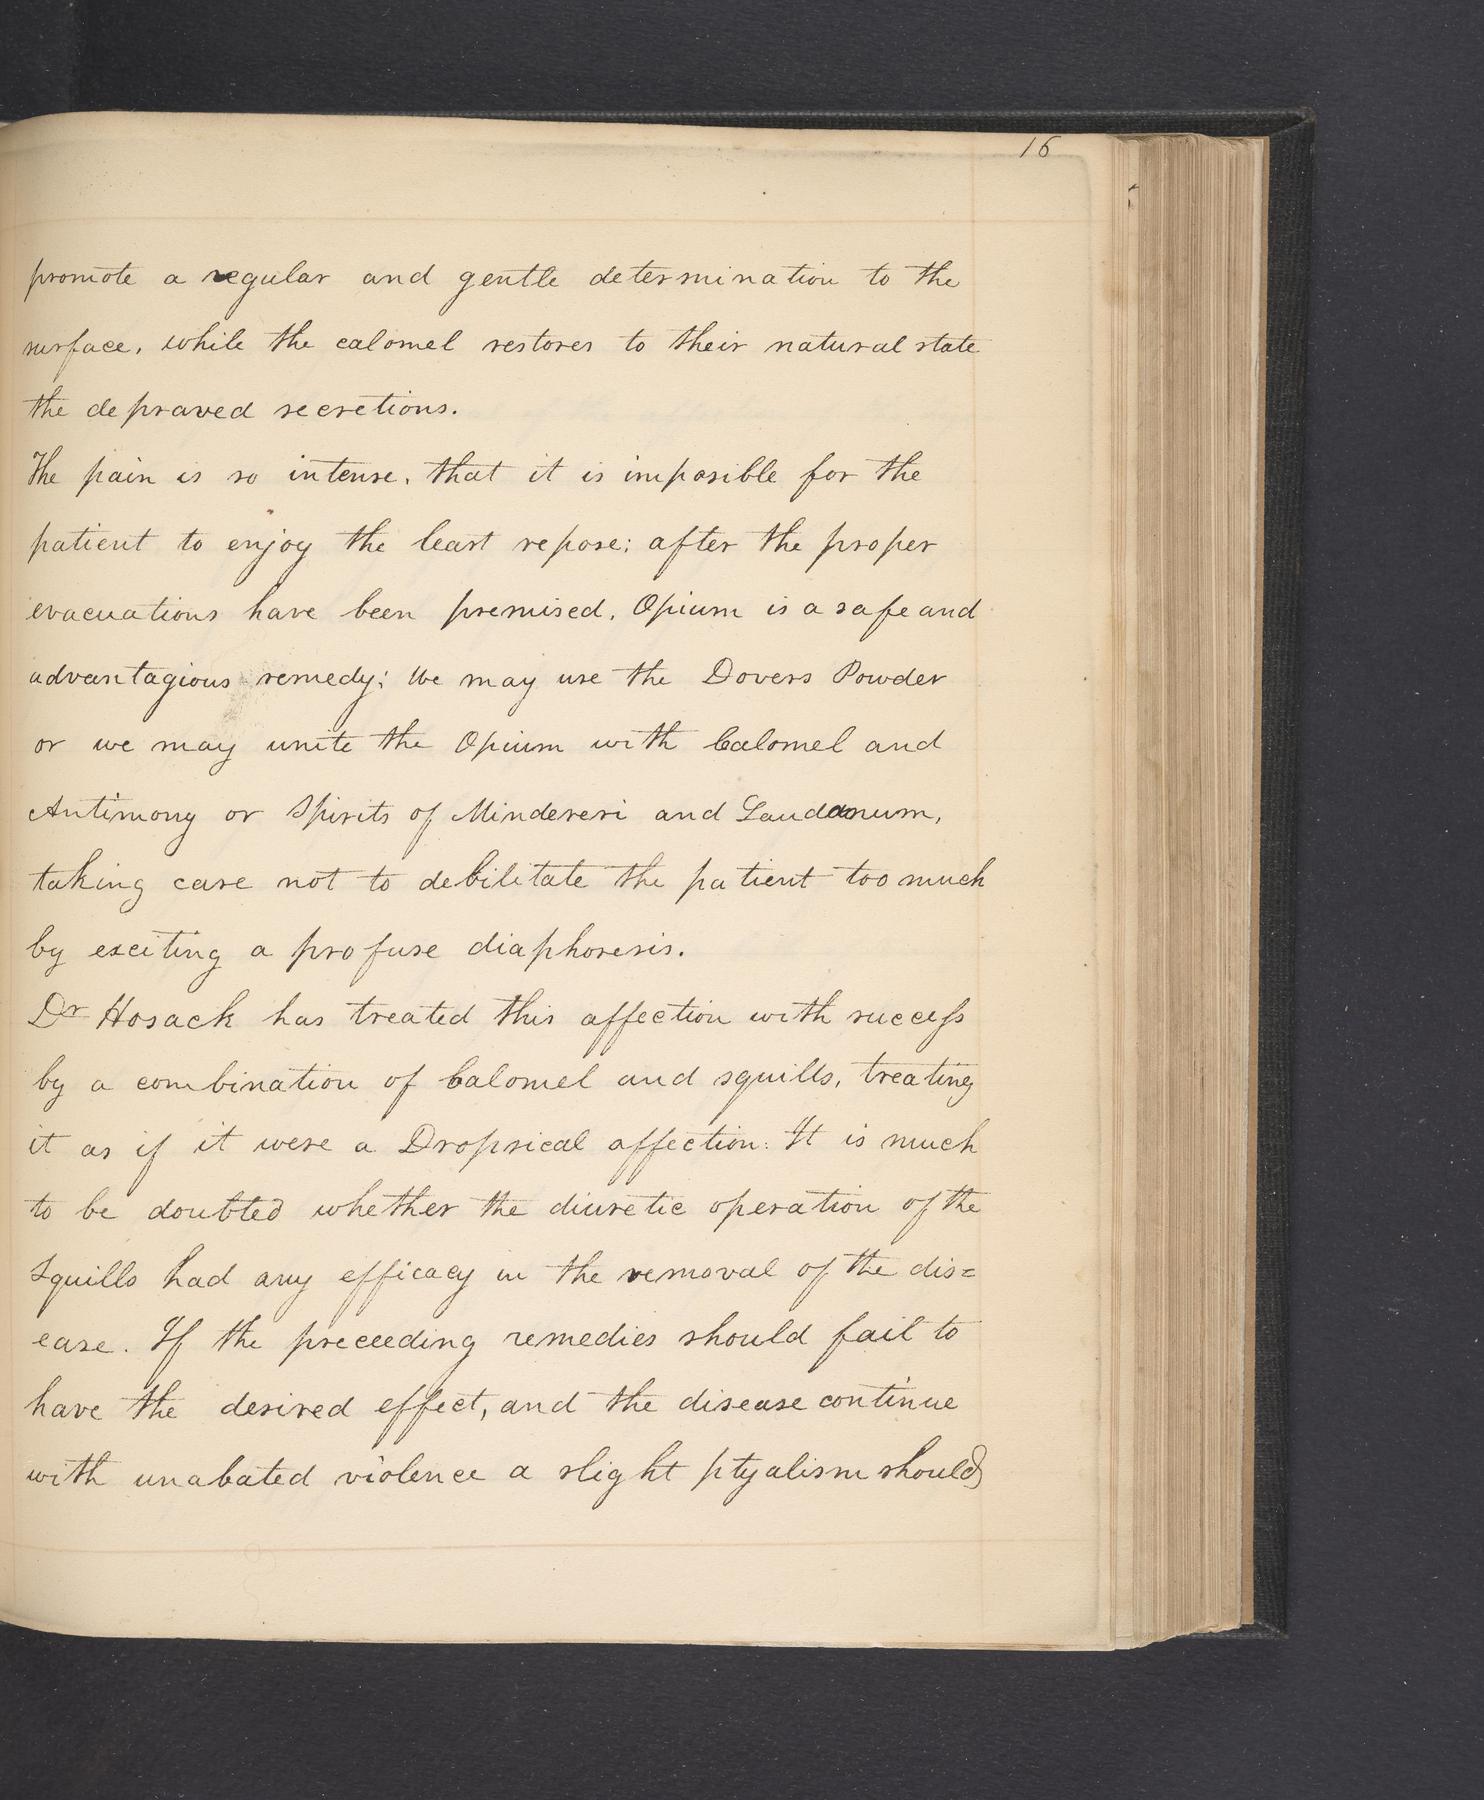 16
promote a regular and gentle determination to the
surface, while the calomel restores to their natural state
the depraved secretions.
The pain is so intense, that it is imposible for the
patient to enjoy the least repose; after the proper
evacuations have been premised, Opium is a safe and
advantagious remedy; We may use the Dovers Powder
or we may unite the Opium with Calomel and
Antimony or Spirits of Mindereri and Laudanum,
taking care not to debilitate the patient too much
by exciting a profuse diaphoresis.
Dr Hosack has treated this affection with success
by a combination of Calomel and squills, treating
it as if it were a Dropsical affection. It is much
to be doubted whether the diuretic operation of the
Squills had any efficacy in the removal of the dis=
ease. If the preceeding remedies should fail to
have the desired effect, and the disease continue
with unabated violence a slight ptyalism should